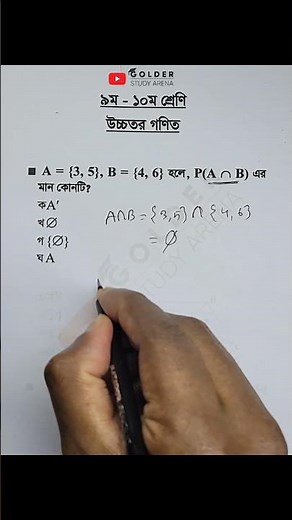 GOLDER
STUDY ARENA
৯ম - ১০ম শ্রেণি
উচ্চতর গণিত
■ A = {3, 5}, B = {4, 6} হলে, P(A ∩ B) এর
মান কোনটি?
ক A′
খ ∅
গ {∅}
ঘ A
A∩B = {3,5} ∩ {4,6}
= ∅
GOLDER
STUDY ARENA